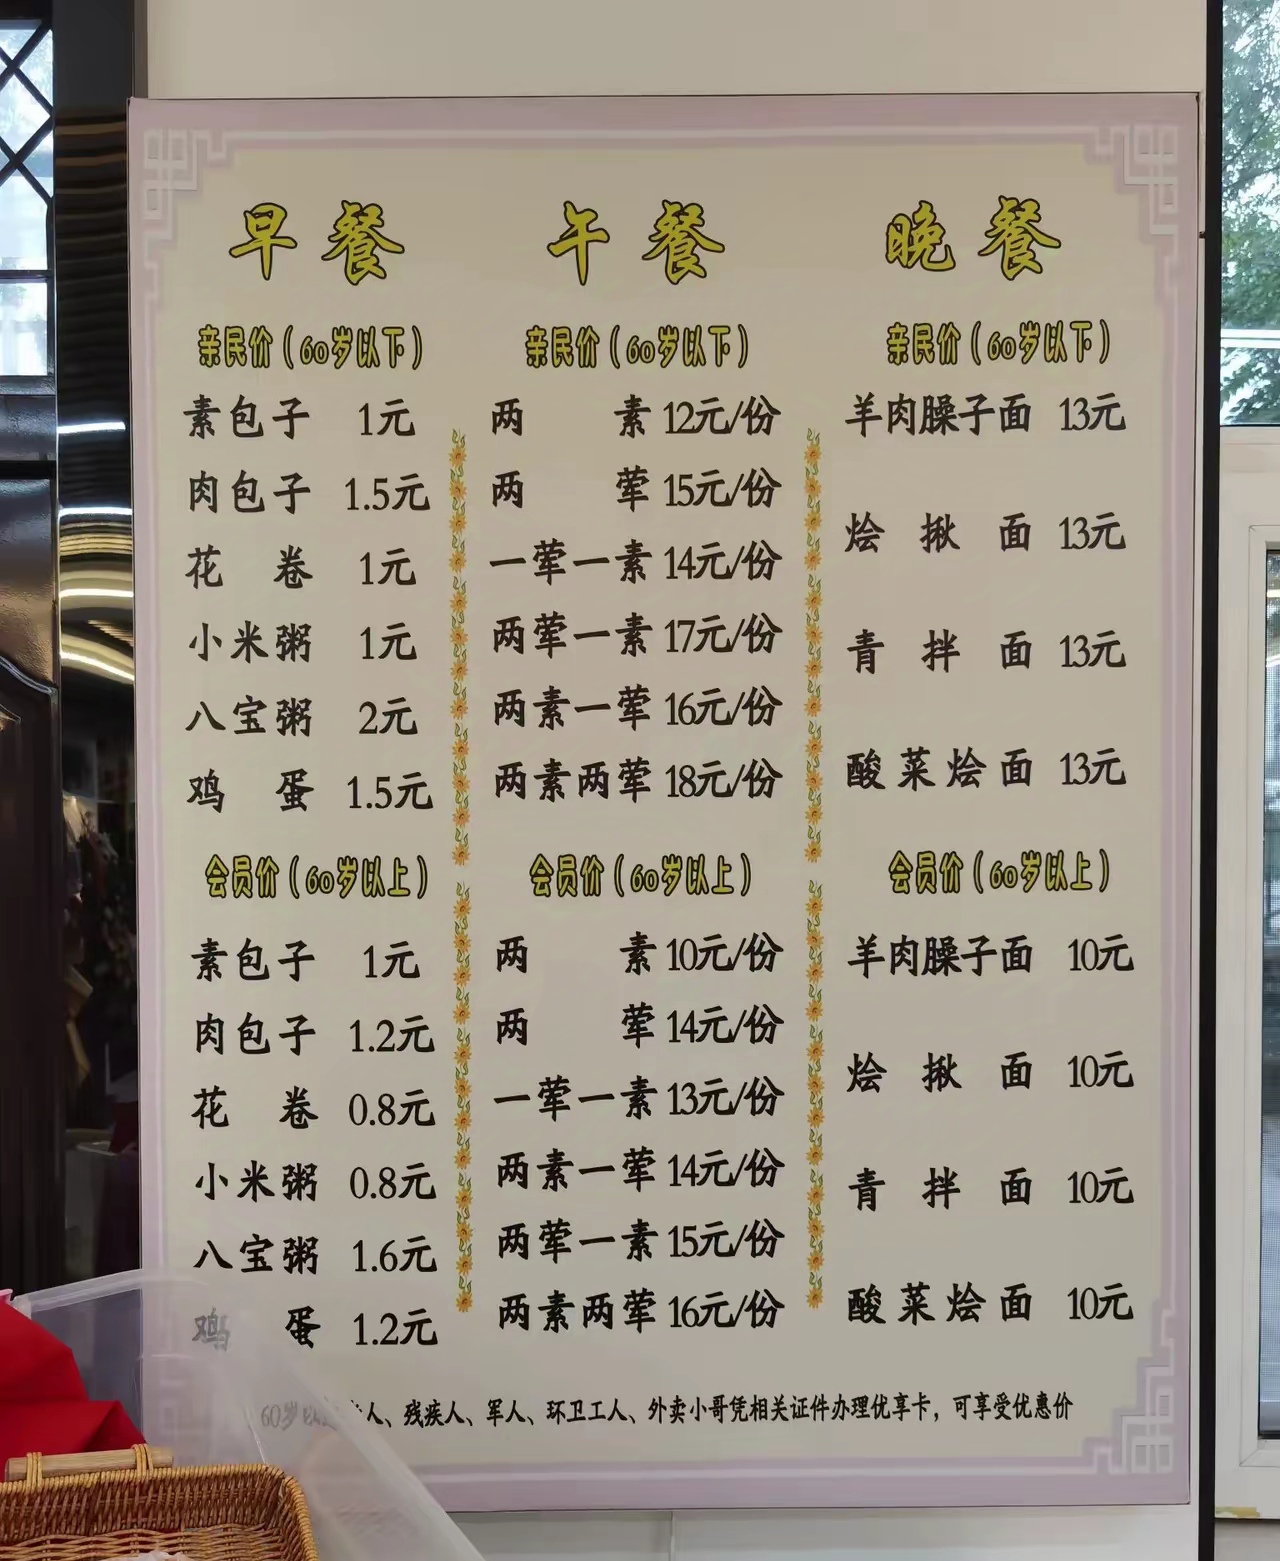 早餐
亲民价（60岁以下）
素包子 1元
肉包子 1.5元
花卷 1元
小米粥 1元
八宝粥 2元
鸡蛋 1.5元
会员价（60岁以上）
素包子 1元
肉包子 1.2元
花卷 0.8元
小米粥 0.8元
八宝粥 1.6元
鸡蛋 1.2元
午餐
亲民价（60岁以下）
两素 12元/份
两荤 15元/份
一荤一素 14元/份
两荤一素 17元/份
两素一荤 16元/份
两素两荤 18元/份
会员价（60岁以上）
两素 10元/份
两荤 14元/份
一荤一素 13元/份
两素一荤 14元/份
两荤一素 15元/份
两素两荤 16元/份
晚餐
亲民价（60岁以下）
羊肉臊子面 13元
烩揪面 13元
青拌面 13元
酸菜烩面 13元
会员价（60岁以上）
羊肉臊子面 10元
烩揪面 10元
青拌面 10元
酸菜烩面 10元
60岁以人、残疾人、军人、环卫工人、外卖小哥凭相关证件办理优享卡，可享受优惠价